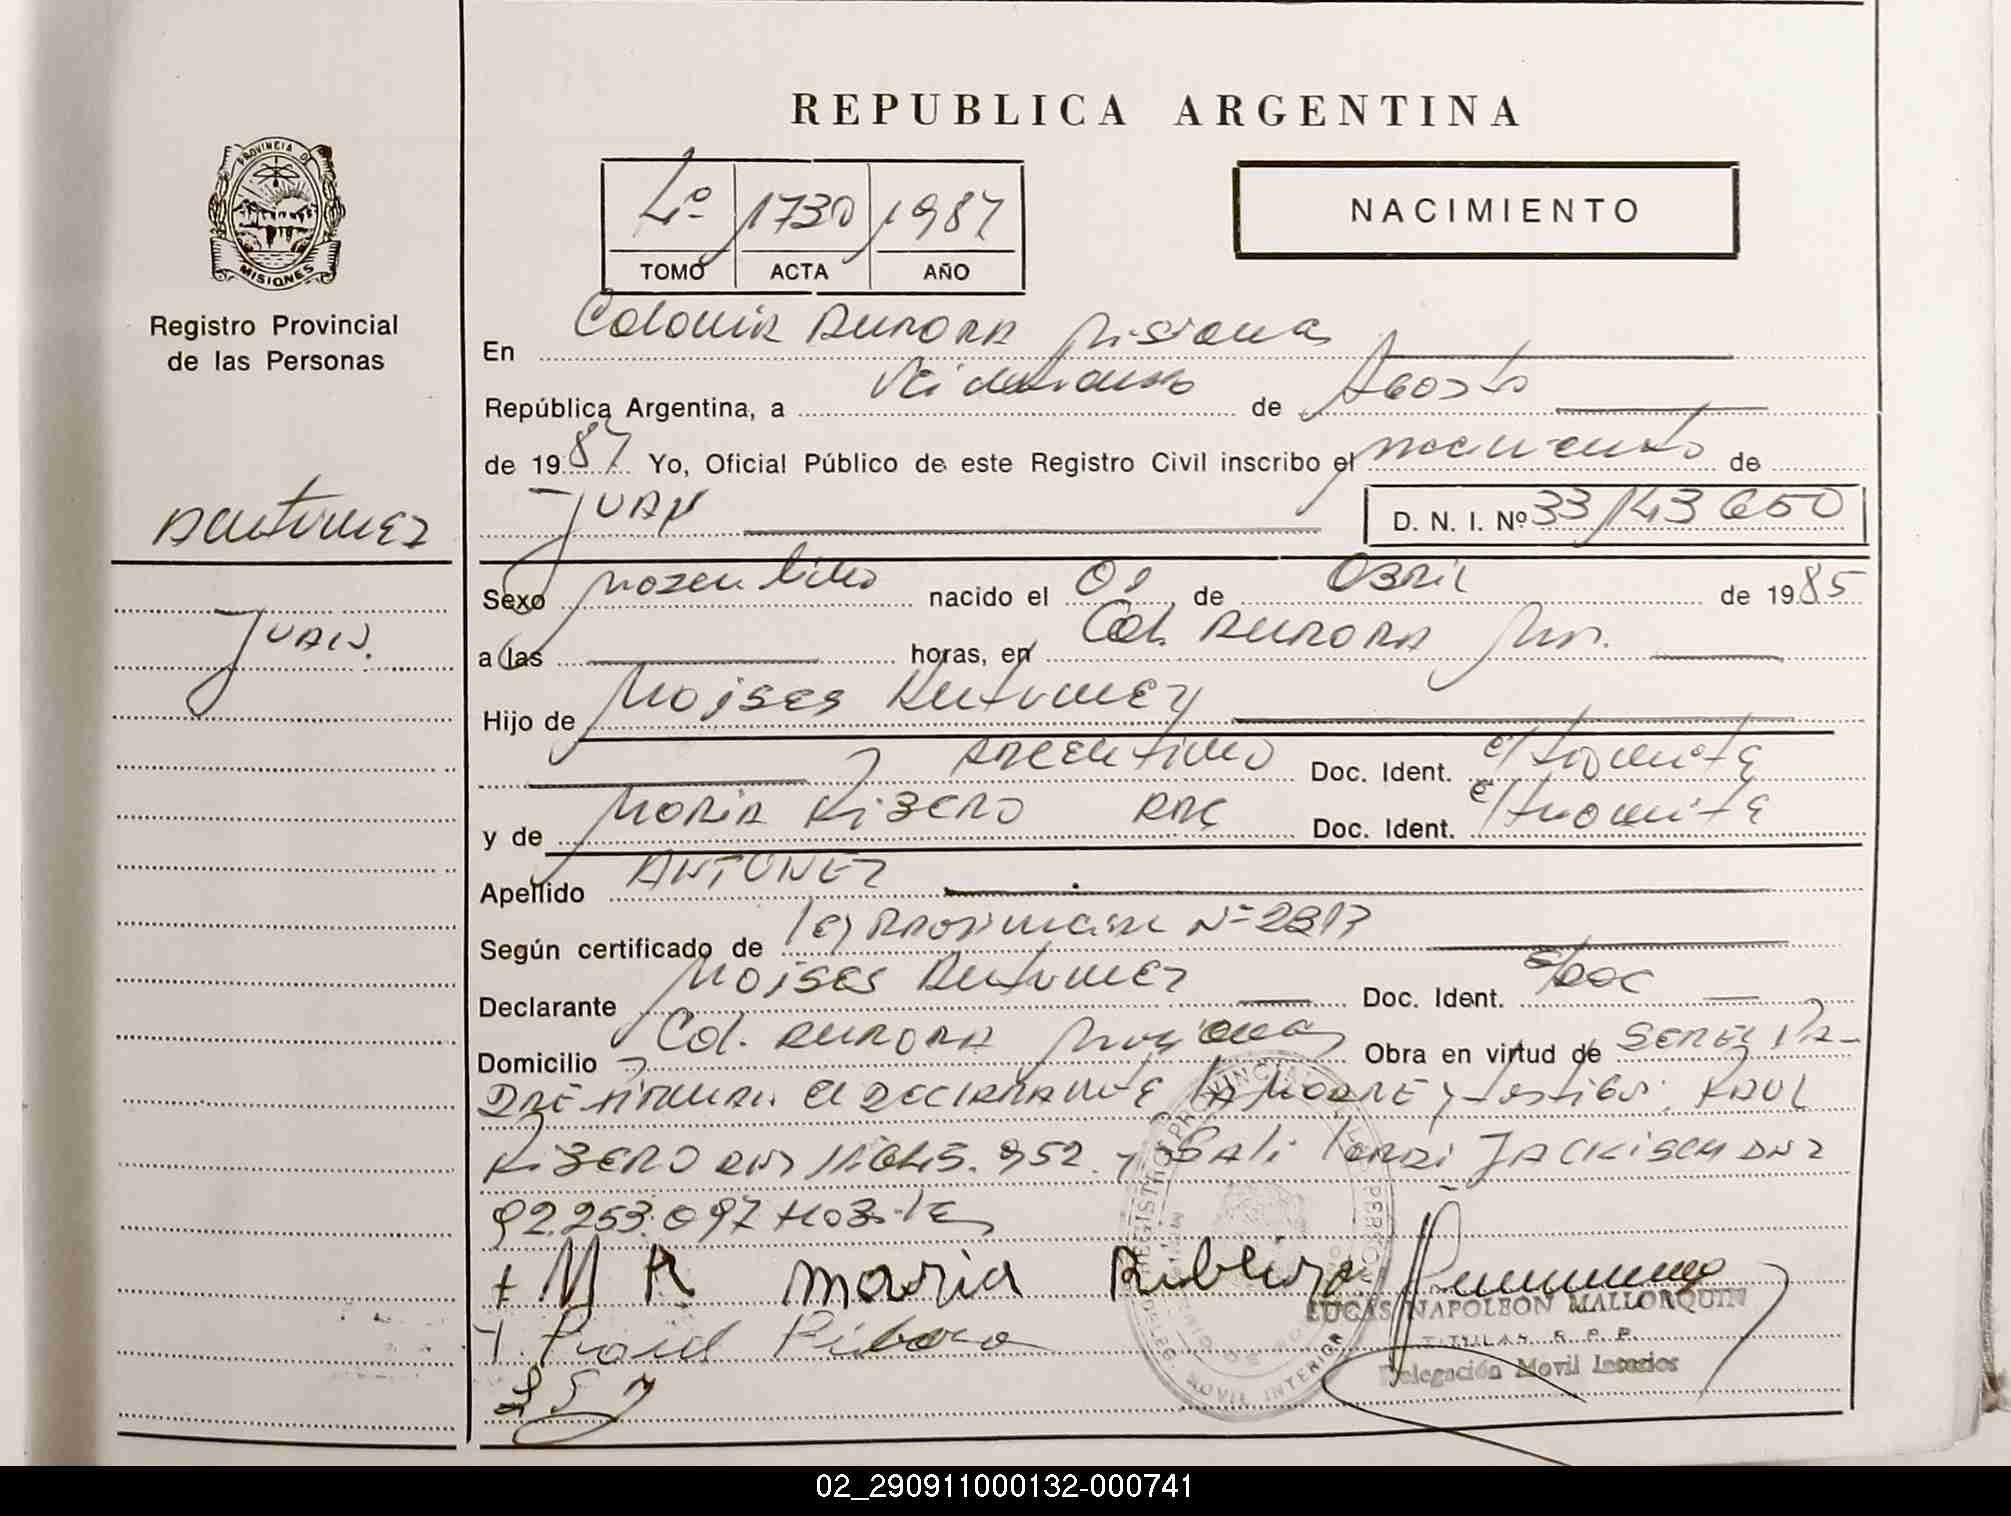 REPUBLICA ARGENTINA
PROVINCIA D
MISIONES
Registro Provincial
de las Personas
4º 1730 1987
TOMO ACTA AÑO
NACIMIENTO
En Colonia Aurora Misiones
República Argentina, a Veintiuno de Agosto
de 1987 Yo, Oficial Público de este Registro Civil inscribo el nacimiento de
Juan
D. N. I. Nº 33143650
Antunez
Juan.
Sexo masculino nacido el 01 de Abril de 1985
a las horas, en Col. Aurora Mnes.
Hijo de Moises Antunez
Argentino Doc. Ident. e/tramite
y de Maria Ribero Arg Doc. Ident. e/tramite
Apellido ANTUNEZ
Según certificado de ley Provincial Nº 2817
Declarante Moises Antunez Doc. Ident. s/doc
Domicilio Col. Aurora Misiones Obra en virtud de ser el Pa-
dre firman el declarante la madre y testigos: Raul
Ribero DNI 11.645.952 y Sali Jackisch DNI
92.253.097 habiles
+ M A maria Ribero
Ribero
REGISTRO PROVINCIAL DE LAS PERSONAS
DELEG. MOVIL INTERIOR
LUCAS NAPOLEON MALLORQUIN
TITULAR R. P. P.
Delegación Movil Interior
02_290911000132-000741